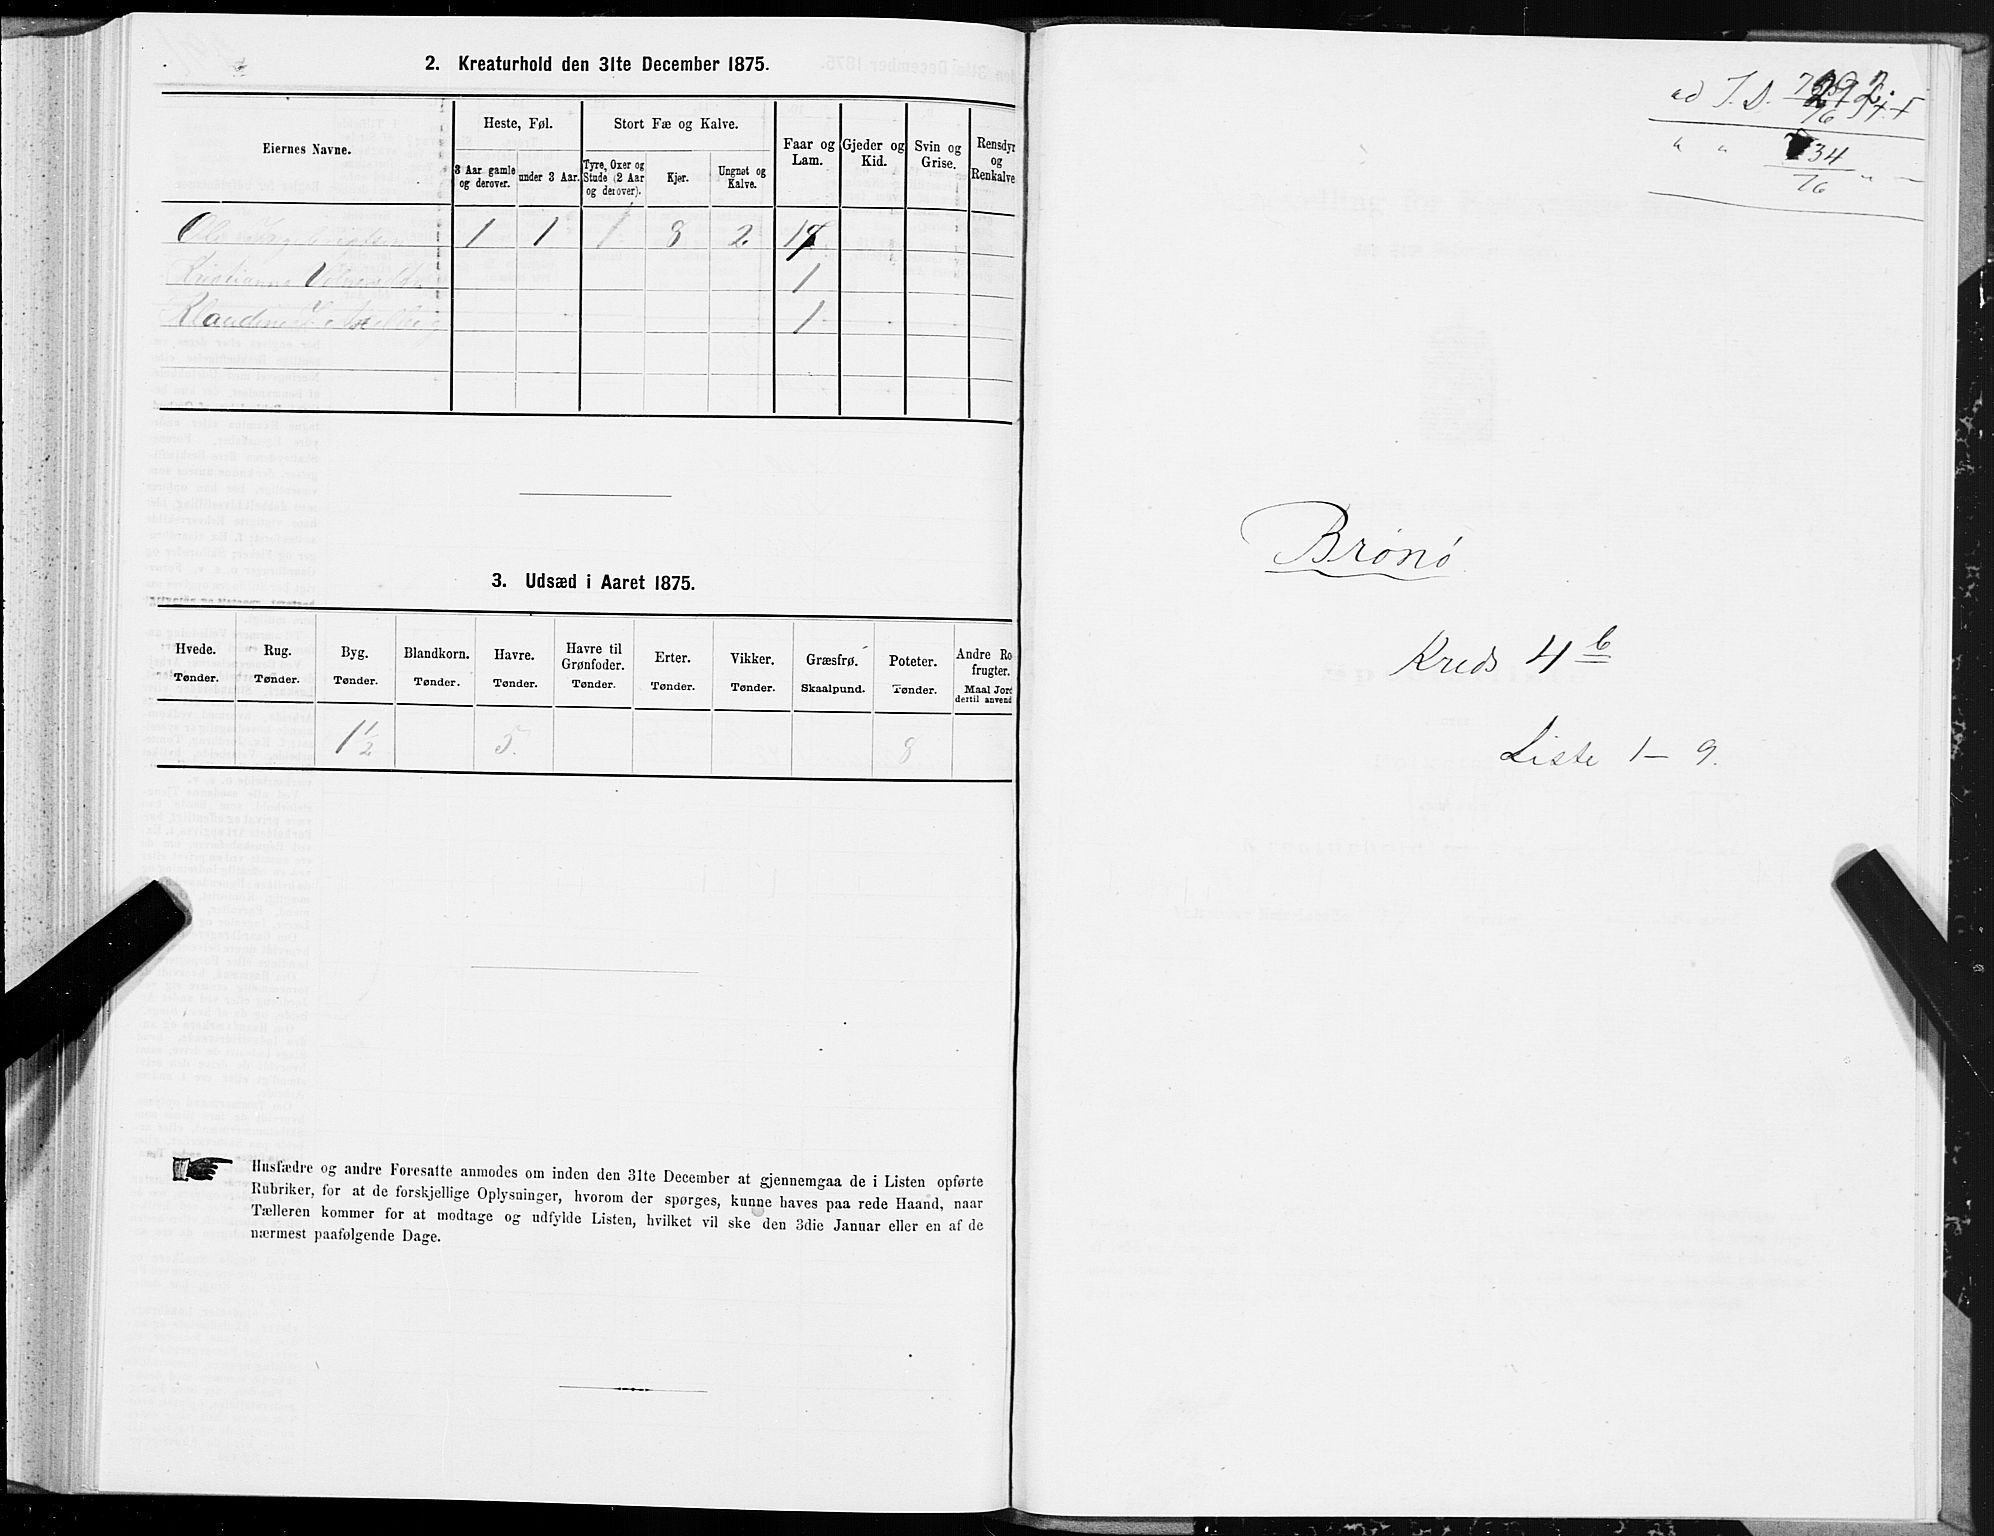 2. Kreaturhold den 31te December 1875.
Eiernes Navne.
Heste, Føl.
Stort Fæ og Kalve.
Faar og Lam.
Gjeder og Kid.
Svin og Grise.
Rensdyr og Renkalve
3 Aar gamle og derover.
under 3 Aar.
Tyre, Oxer og Stude (2 Aar og derover).
Kjør.
Ungnøt og Kalve.
1 1 1 8 2
Kristianna 1
Klaudine 1
3. Udsæd i Aaret 1875.
Hvede. Rug. Byg. Blandkorn. Havre. Havre til Grønfoder. Erter. Vikker. Græsfrø. Poteter. Andre Ro frugter.
Tønder. Tønder. Tønder. Tønder. Tønder. Tønder. Tønder. Tønder. Skaalpund. Tønder. Maal Jord dertil anvend
1 1/2 5. 8
Husfædre og andre Foresatte anmodes om inden den 31te December at gjennemgaa de i Listen opførte
Rubriker, for at de forskjellige Oplysninger, hvorom der spørges, kunne haves paa rede Haand, naar
Tælleren kommer for at modtage og udfylde Listen, hvilket vil ske den 3die Januar eller en af de
nærmest paafølgende Dage.
ad J. D.
" " 34
76 " —
Brønø
Kreds 4 b
Liste 1 — 9.